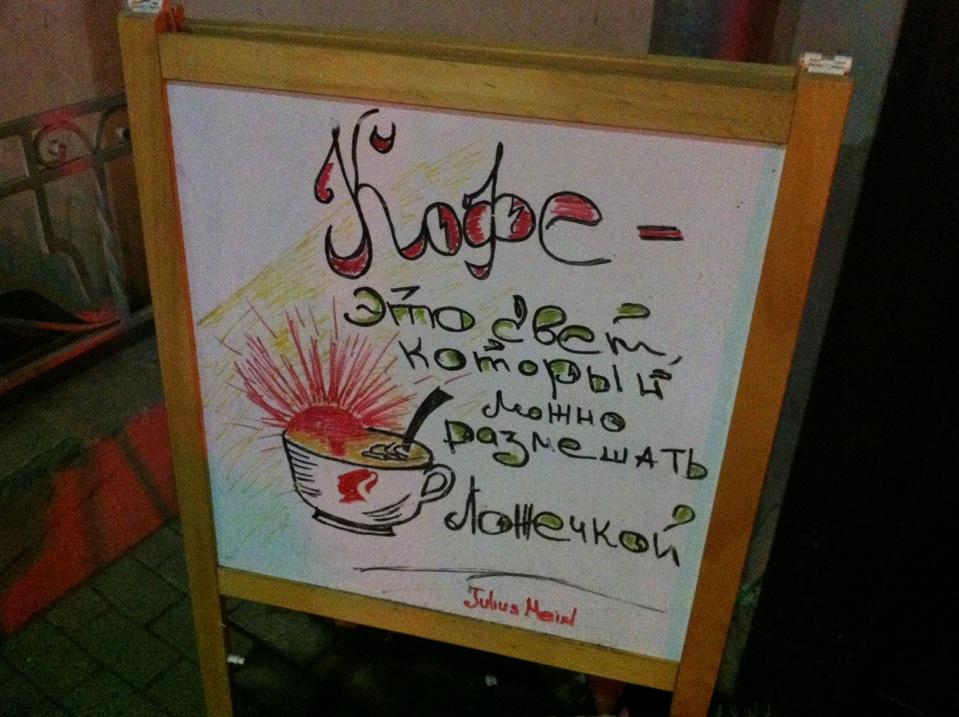 Кофе -
это свет,
который
можно
размешать
ложечкой
Julius Meinl